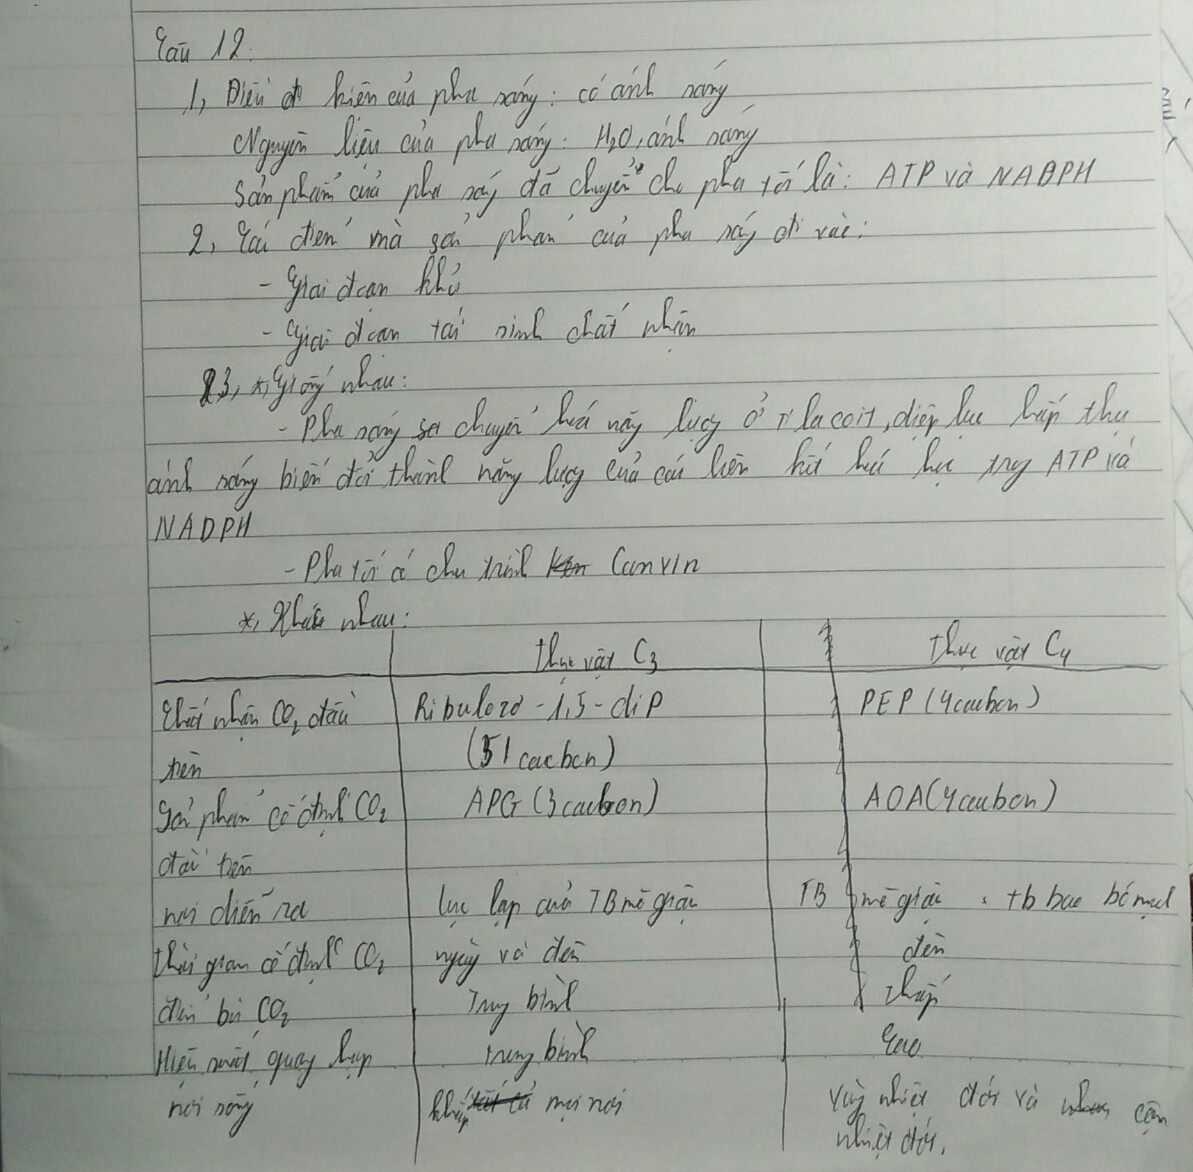 Câu 12.
1, Điều đ kiện của pha sáng: có ánh sáng
Nguyên liệu của pha sáng: H₂O, ánh sáng
Sản phẩm của pha sáng đã chuyển cho pha tối là: ATP và NADPH
2, Cái điểm mà sản phẩm của pha sáng đi vào:
- Giai đoạn khử
- Giai đoạn tái sinh chất nhận
3, *, Giống nhau:
- Pha sáng chuyển hoá năng lượng ở Tilacoit, diệp lục hấp thụ
ánh sáng biến đổi thành năng lượng của các liên kết hoá học trong ATP và
NADPH
- Pha tối có chu trình Canvin
*, Khác nhau:
thực vật C₃ thực vật C₄
Chất nhận CO₂ đầu tiên Ribulozo - 1,5 - diP (5 cacbon) PEP (4 cacbon)
Sản phẩm cố định CO₂ đầu tiên APG (3 cacbon) AOA (4 cacbon)
nơi diễn ra lục lạp của TB mô giậu TB mô giậu, tb bao bó mạch
thời gian cố định CO₂ ngày và đêm đêm
điểm bù CO₂ Trung bình thấp
Hiệu suất quang hợp trung bình Cao
nơi sống khắp mọi nơi vùng nhiệt đới và cận
nhiệt đới.